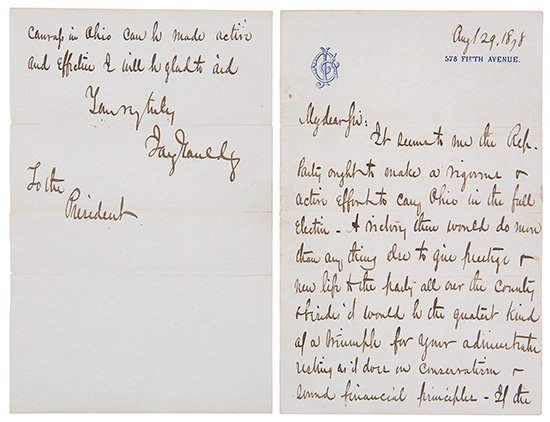 Augt 29, 1878
578 FIFTH AVENUE.
My dear Sir:
It seems to me the Rep.
Party ought to make a vigorous &
active effort to carry Ohio in the fall
Election - A victory there would do more
than any thing else to give prestige &
new life to the party all over the country
& besides it would be the greatest kind
of a triumph for your administration
resting as it does on conservatism &
sound financial principles - If the
canvass in Ohio can be made active
and effective I will be glad to aid
Yours very truly
Jay Gould
To the
President